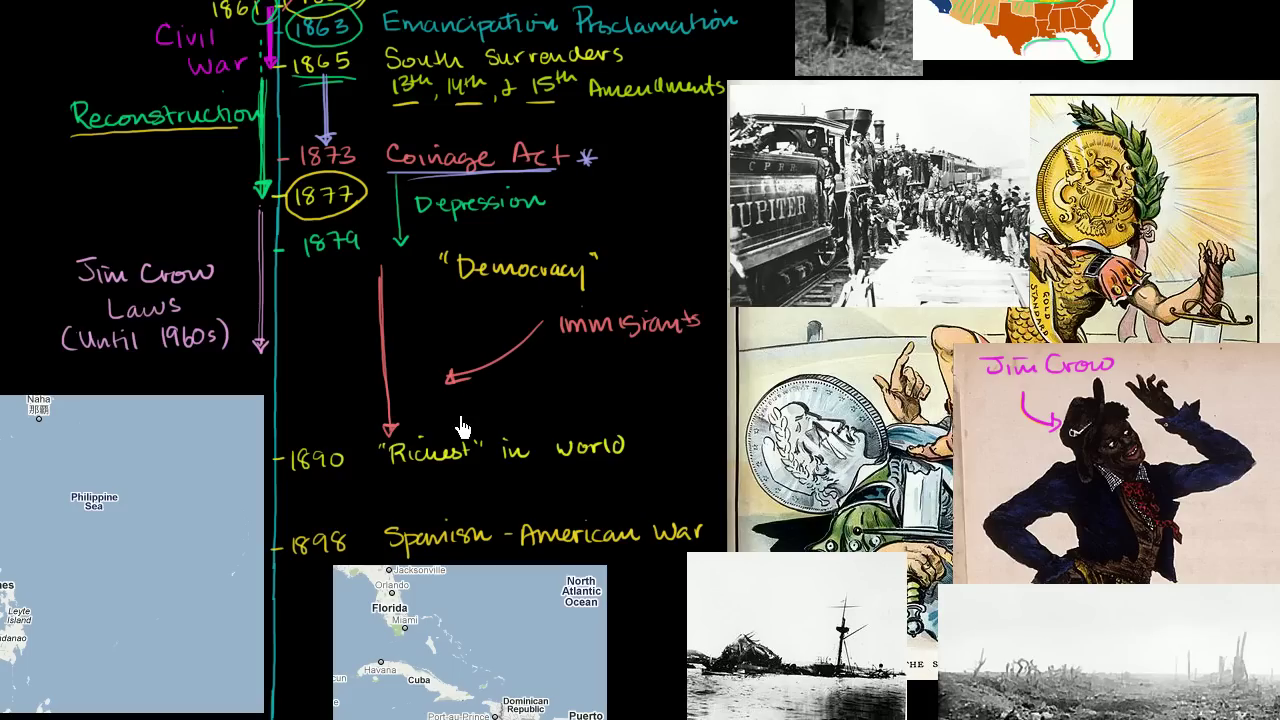 1861
1863 Emancipation Proclamation
Civil
War
1865 South Surrenders
13th, 14th, & 15th Amendments
Reconstruction
1873 Coinage Act *
1877
Depression
1879
"Democracy"
Jim Crow
Laws
(Until 1960s)
immigrants
1890 "Richest" in world
1898 Spanish-American War
C P R R
JUPITER
GOLD
STANDARD
Jim Crow
Naha
那覇
Philippine
Sea
nes
Leyte
Island
danao
Jacksonville
Orlando
Florida
Miami
North
Atlantic
Ocean
Havana
Cuba
cun
Dominican
Republic
Port-au Prince
Puerto
HE S